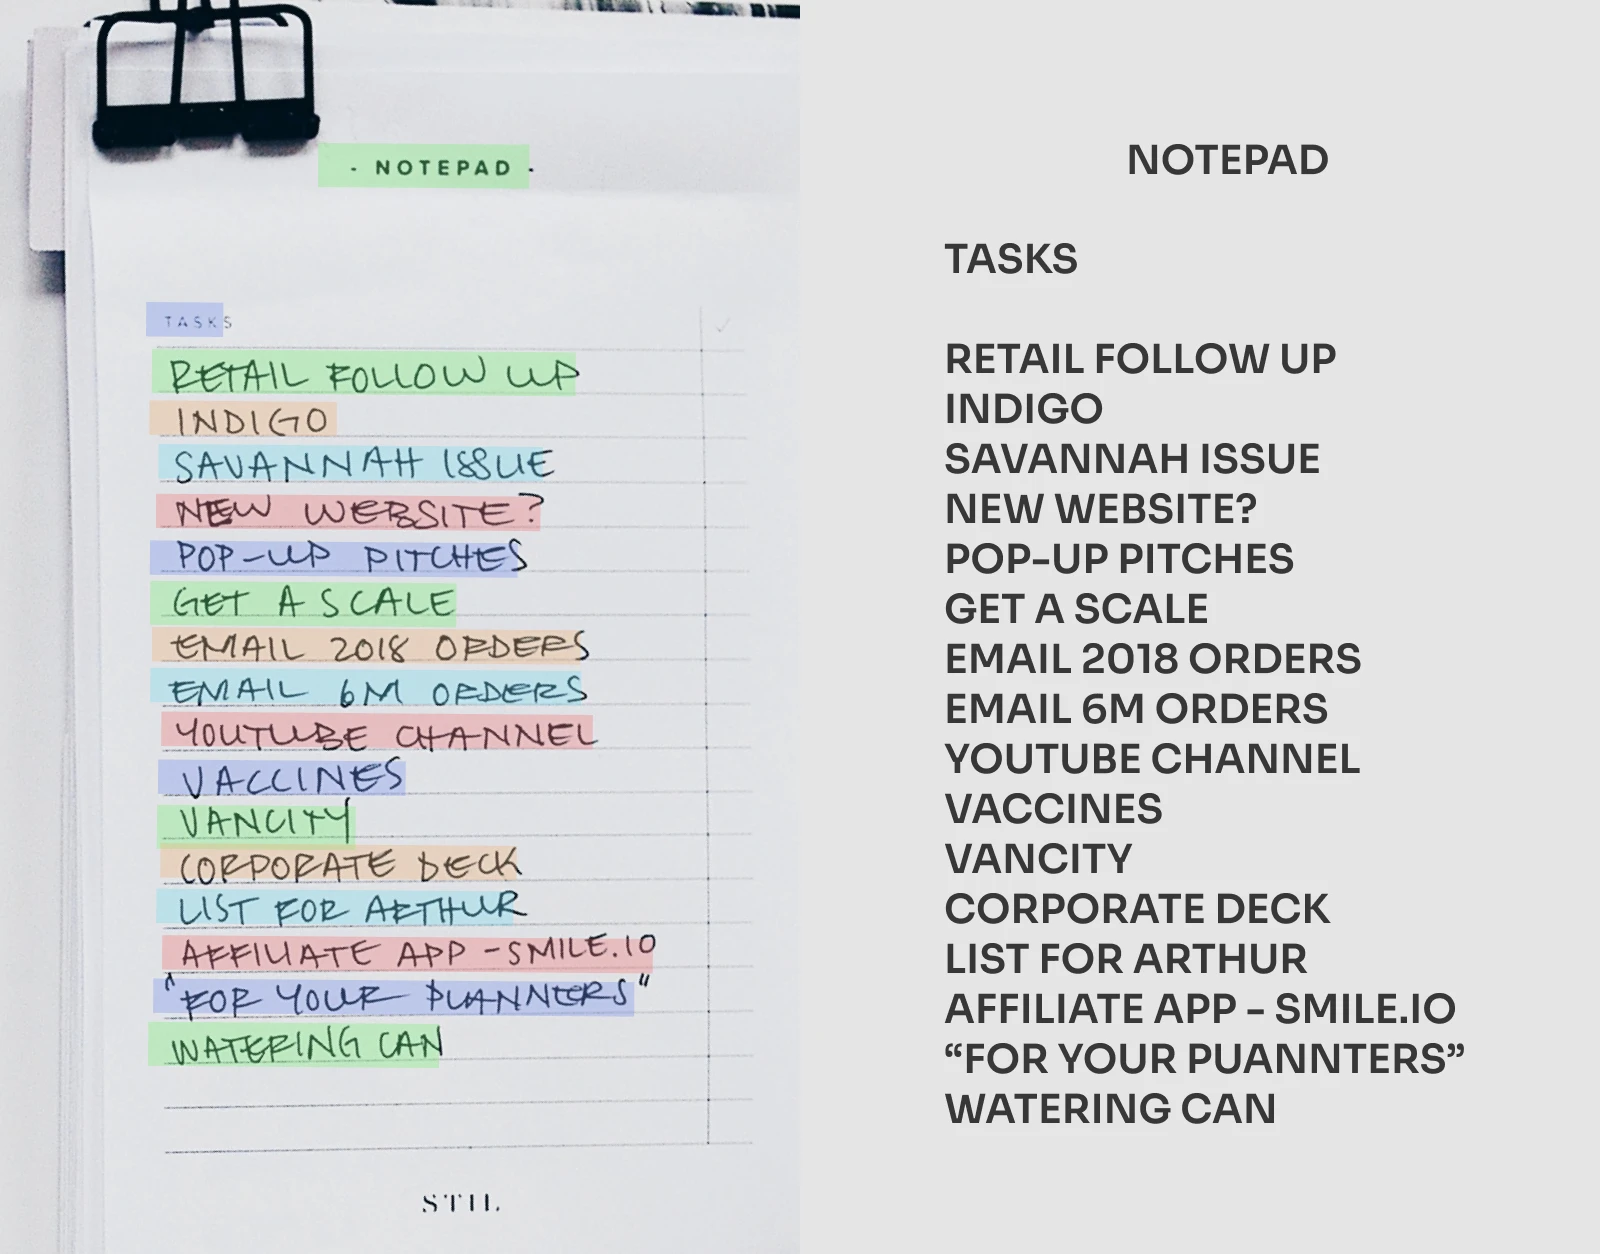 - NOTEPAD -
TASKS ✓
RETAIL FOLLOW UP
INDIGO
SAVANNAH ISSUE
NEW WEBSITE?
POP-UP PITCHES
GET A SCALE
EMAIL 2018 ORDERS
EMAIL 6M ORDERS
YOUTUBE CHANNEL
VACCINES
VANCITY
CORPORATE DECK
LIST FOR ARTHUR
AFFILIATE APP - SMILE.IO
"FOR YOUR PLANNERS"
WATERING CAN
STIL
NOTEPAD
TASKS
RETAIL FOLLOW UP
INDIGO
SAVANNAH ISSUE
NEW WEBSITE?
POP-UP PITCHES
GET A SCALE
EMAIL 2018 ORDERS
EMAIL 6M ORDERS
YOUTUBE CHANNEL
VACCINES
VANCITY
CORPORATE DECK
LIST FOR ARTHUR
AFFILIATE APP - SMILE.IO
“FOR YOUR PUANNTERS”
WATERING CAN